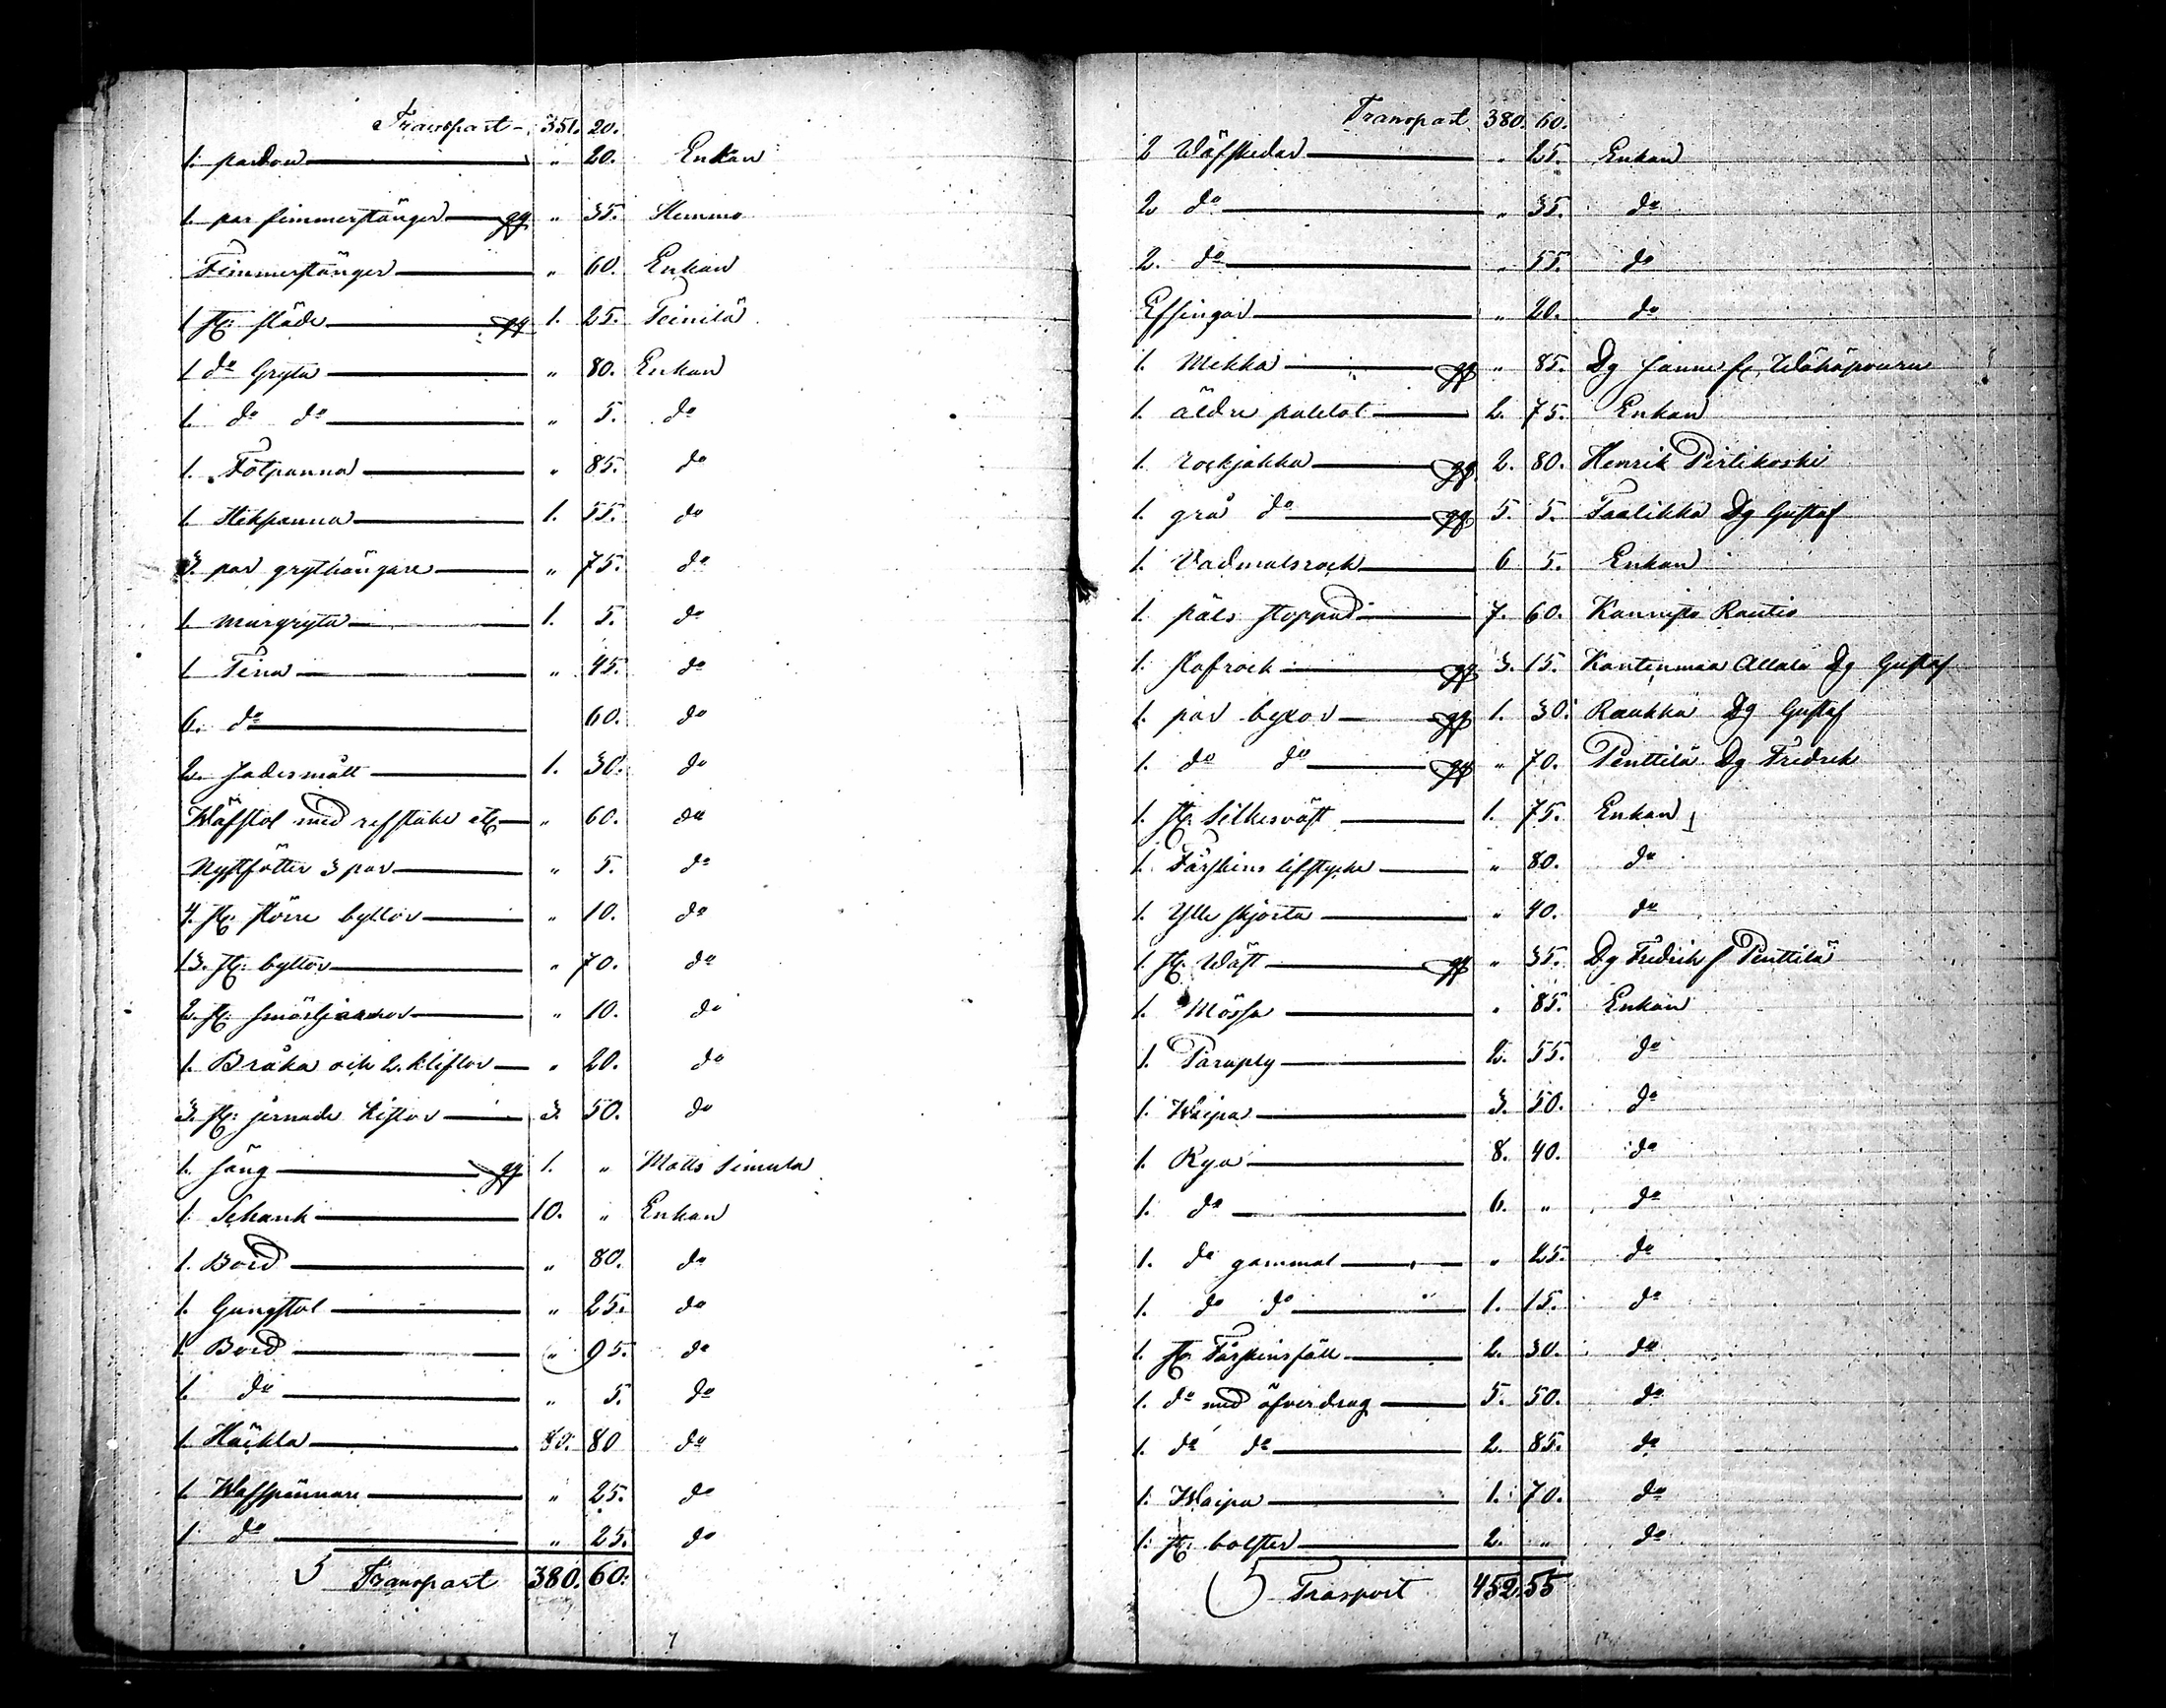 Transport 351. 20.
1. pardon " 20. Enkan
1. par fimmerstänger gg " 35. Hemmo
Fimmerstänger " 60. Enkan
1 st: släde gg 1. 25. Teinilä
1 do Gryta " 80. Enkan
1. do do " 5. do
1. Fotpanna " 85. do
1. Stekpanna 1. 55. do
3. par grythängare " 75. do
1. murgryta 1. 5. do
1 Tina " 45. do
6. do 60. do
2. Jadesmått 1. 30. do
Wäfstol med refstake etc " 60. do
Nystfötter 3 par " 5. do
4. st: större byttor " 10. do
13. st: byttor " 70. do
2. st: smörtjärnor " 10. do
1. Bråka och 2. kliftor " 20. do
3. st: jernade kistor 3. 50. do
1. säng gg 1. " Matts Simula
1. Schank 10. " Enkan
1. Bord " 80. do
1. Gungstol " 25. do
1. Bord " 95. do
1. do " 5. do
1. Häckla 80. 80 do
1. Wafspinnare " 25. do
1. do " 25. do
Transport 380. 60.
Transport 380. 60.
2 Wäfskedar " 25. Enkan
2 do " 35. do
2. do " 55. do
Essingar " 20. do
1. Mekka gg " 85. Dg Janne fr. Wähäpouru
1. äldre paletot 2. 75. Enkan
1. rockjakka gg 2. 80. Henrik Pertikoski
1. grå do gg 5. 5. Faalikka Dg Gustaf
1. Vadmalsrock 6 5. Enkan
1. päls stoppad 7. 60. Kannisto Rautio
1. Hofrock gg 3. 15. Kantinmaa Allala Dg Gustaf
1. par byxor gg 1. 30. Raukka Dg Gustaf
1. do do gg " 70. Penttilä Dg Fredrik
1. st: Silkesväst 1. 75. Enkan
1. Fårskins lifstycke " 80. do
1. Ylle skjorta " 40. do
1. st: Wäst gg " 35. Dg Fredrik f Penttilä
1. Mössa " 85. Enkan
1. Paraply 2. 55. do
1. Waipa 3. 50. do
1. Rya 8. 40. do
1. do 6. " do
1. do gammal " 25. do
1. do do 1. 15. do
1. st: Fårskinsfäll 2. 30. do
1. do med öfverdrag 5. 50. do
1. do do 2. 85. do
1. Waipa 1. 70. do
1. st: bolster 2. " do
Trasport 452. 55